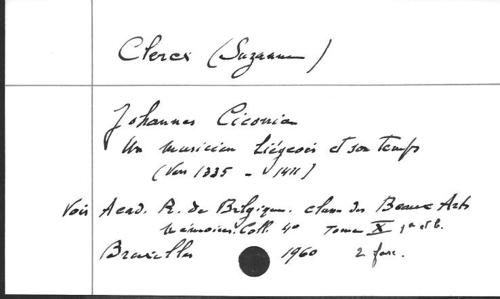 Clercx (Suzanne)
Johannes Ciconia
Un musicien Liégeois et son temps
(Vers 1335 - 1411)
Voir Acad. R. de Belgique. classe des Beaux Arts
Mémoires. Coll. 4° Tome X 1a et b.
Bruxelles 1960 2 fasc.